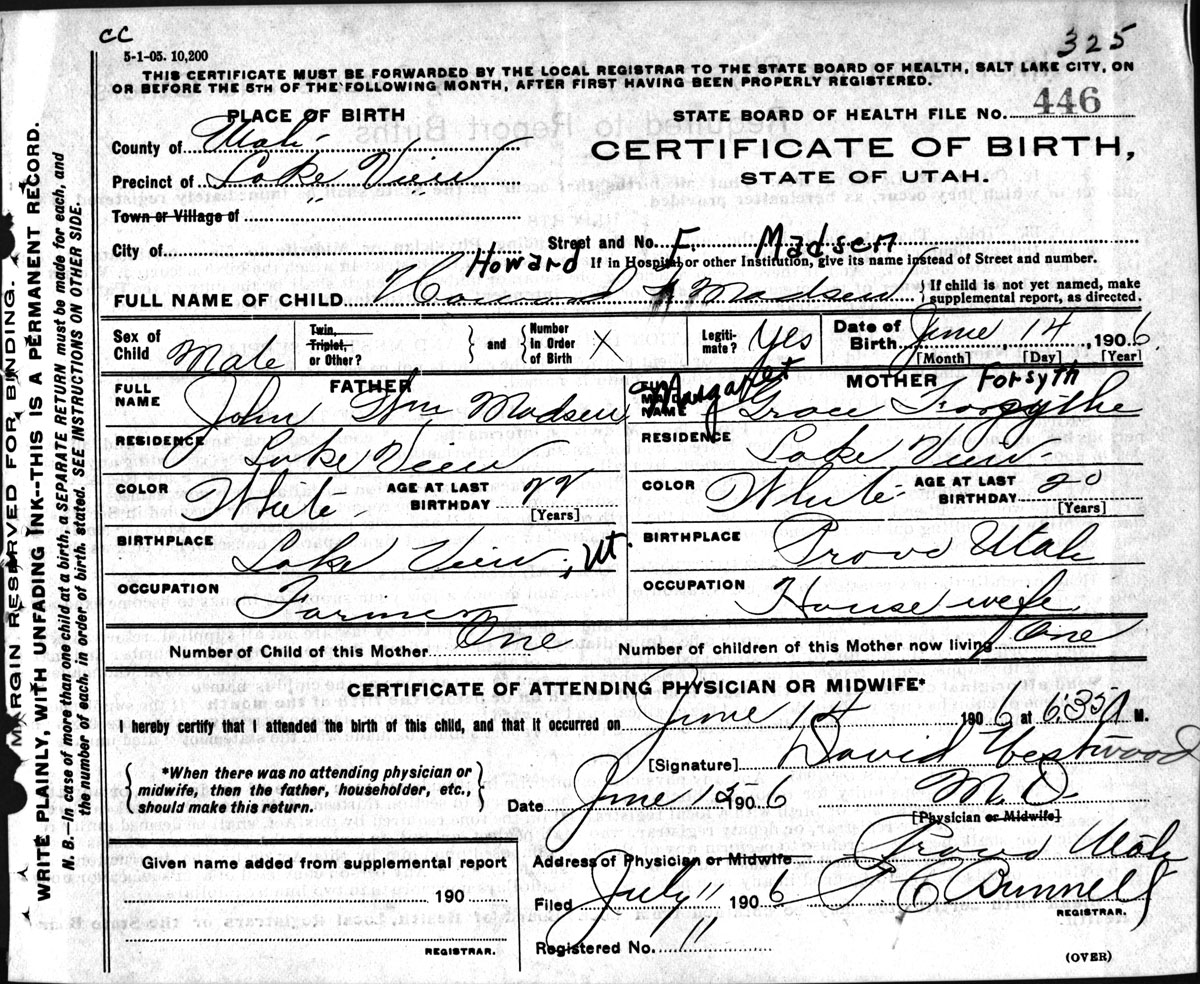 CC
325
5-1-05. 10,200
THIS CERTIFICATE MUST BE FORWARDED BY THE LOCAL REGISTRAR TO THE STATE BOARD OF HEALTH, SALT LAKE CITY, ON
OR BEFORE THE 5TH OF THE FOLLOWING MONTH, AFTER FIRST HAVING BEEN PROPERLY REGISTERED.
PLACE OF BIRTH
STATE BOARD OF HEALTH FILE No. 446
County of Utah
CERTIFICATE OF BIRTH,
Precinct of Lake View
STATE OF UTAH.
Town or Village of " "
City of
Street and No. F. Madsen
Howard If in Hospital or other Institution, give its name instead of Street and number.
FULL NAME OF CHILD Howard F Madsen { If child is not yet named, make supplemental report, as directed.
Sex of Child Male
Twin, Triplet, or Other? } and { Number in Order of Birth X
Legiti-mate? Yes
Date of Birth June 14, 1906
[Month] [Day] [Year]
FATHER
FULL NAME John Wm Madsen
MOTHER
NAME Margaret Grace Forsythe Forsyth
RESIDENCE Lake View
RESIDENCE Lake View
COLOR White AGE AT LAST BIRTHDAY 22 [Years]
COLOR White AGE AT LAST BIRTHDAY 20 [Years]
BIRTHPLACE Lake View, Ut.
BIRTHPLACE Provo Utah
OCCUPATION Farmer
OCCUPATION House wife
Number of Child of this Mother One
Number of children of this Mother now living One
CERTIFICATE OF ATTENDING PHYSICIAN OR MIDWIFE*
I hereby certify that I attended the birth of this child, and that it occurred on June 14 1906 at 6:35 A M.
[Signature] David Westwood
{ *When there was no attending physician or midwife, then the father, householder, etc., should make this return. }
Date June 15 1906 M.D.
[Physician or Midwife]
Given name added from supplemental report
190
REGISTRAR.
Address of Physician or Midwife Provo Utah
Filed July 11 1906 Bunnell
REGISTRAR.
Registered No. 11
(OVER)
MARGIN RESERVED FOR BINDING.
WRITE PLAINLY, WITH UNFADING INK--THIS IS A PERMANENT RECORD.
N. B.--In case of more than one child at a birth, a SEPARATE RETURN must be made for each, and
the number of each, in order of birth, stated. SEE INSTRUCTIONS ON OTHER SIDE.